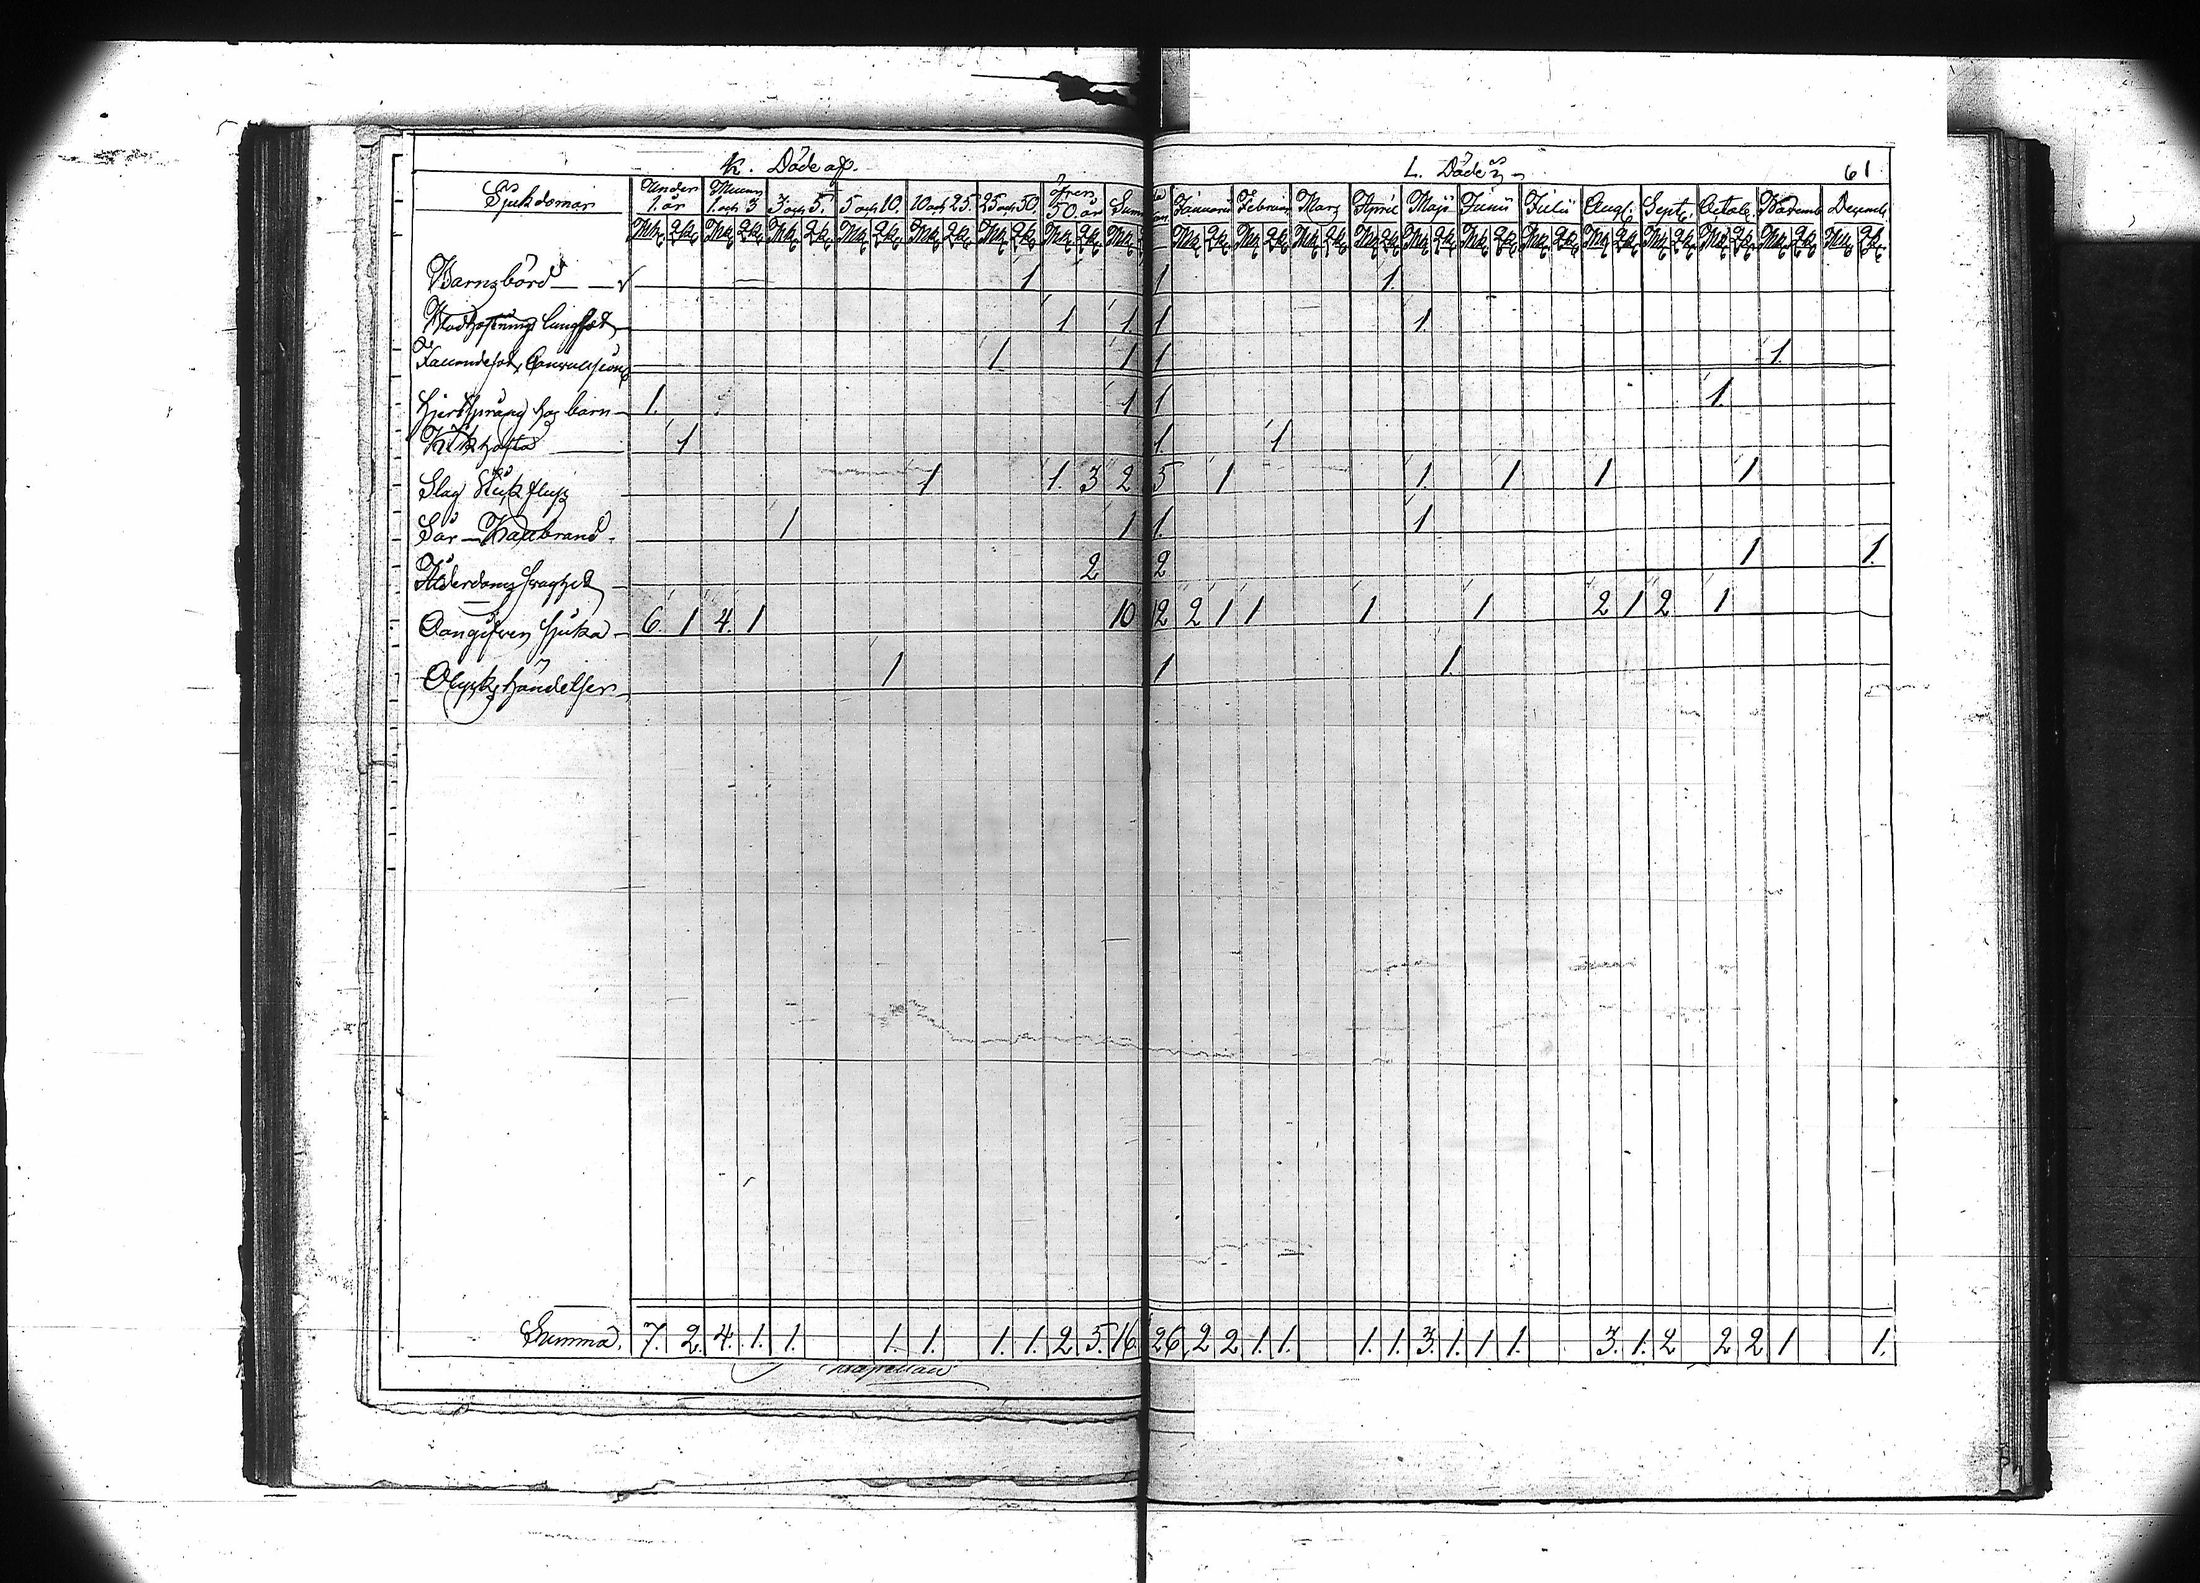 K. Döde af. L. Döde 61
Sjukdomar Under 1. år 1. och 3 3 och 5. 5 och 10. 10 och 25. 25 och 50. öfver 50. år Januarii Februarii Marz Aprill Maji Junii Julii Aug. Sept. Octob. Novemb. Decemb.
Mk. Qk. Mk. Qk. Mk. Qk. Mk. Qk. Mk. Qk. Mk. Qk. Mk. Qk. Mk. Mk. Qk. Mk. Qk. Mk. Qk. Mk. Qk. Mk. Qk. Mk. Qk. Mk. Qk. Mk. Qk. Mk. Qk. Mk. Qk. Mk. Qk. Mk. Qk.
Barnsbörd 1 1 1.
Blodhostning Lungsot 1 1 1 1.
Fallandesot, Convulsioner 1. 1 1 1.
Hjertsprång hos barn 1. 1 1 1.
Kikhosta 1 1. 1
Slag Stickfluss 1 1. 3 2 5 1 1. 1 1 1
Sår Kallbrand. 1 1 1. 1
Ålderdoms svaghet 2 2 1 1.
Oangifven sjuka 6. 1 4. 1 10 12 2 1 1 1 1 2 1 2 1
Olyckshändelser 1 1 1.
Summa. 7. 2. 4. 1. 1. 1. 1. 1. 1. 2 5. 16. 26 2 2 1. 1. 1. 1. 3. 1. 1 1. 3. 1. 2 2 2 1 1.